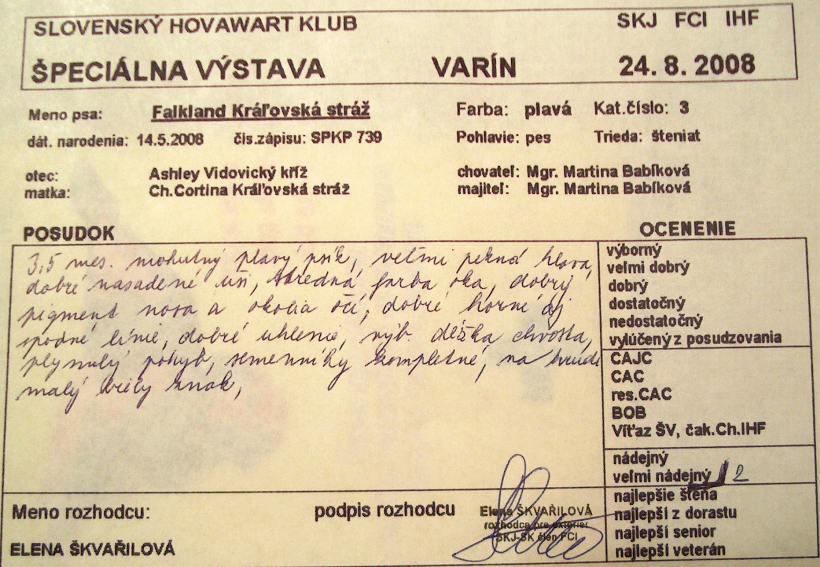 SLOVENSKÝ HOVAWART KLUB SKJ FCI IHF
ŠPECIÁLNA VÝSTAVA VARÍN 24. 8. 2008
Meno psa: Falkland Kráľovská stráž Farba: plavá Kat.číslo: 3
dát. narodenia: 14.5.2008 čis.zápisu: SPKP 739 Pohlavie: pes Trieda: šteniat
otec: Ashley Vidovický kříž chovateľ: Mgr. Martina Babíková
matka: Ch.Cortina Kráľovská stráž majiteľ: Mgr. Martina Babíková
POSUDOK
3,5 mes. mohutný plavý psík, veľmi pekná hlava,
dobré nasadené uši, stredná farba oka, dobrý
pigment nosa a okolia očí, dobré horné aj
spodné línie, dobré uhlenie, výb. dĺžka chvosta,
plynulý pohyb, semenníky kompletné, na hrudi
malý biely znak,
OCENENIE
výborný
veľmi dobrý
dobrý
dostatočný
nedostatočný
vylúčený z posudzovania
CAJC
CAC
res.CAC
BOB
Víťaz ŠV, čak.Ch.IHF
nádejný
veľmi nádejný 2
najlepšie šteňa
najlepší z dorastu
najlepší senior
najlepší veterán
Meno rozhodcu: podpis rozhodcu
ELENA ŠKVAŘILOVÁ
Elena ŠKVAŘILOVÁ
rozhodca pre exteriér
SKJ-SK člen FCI